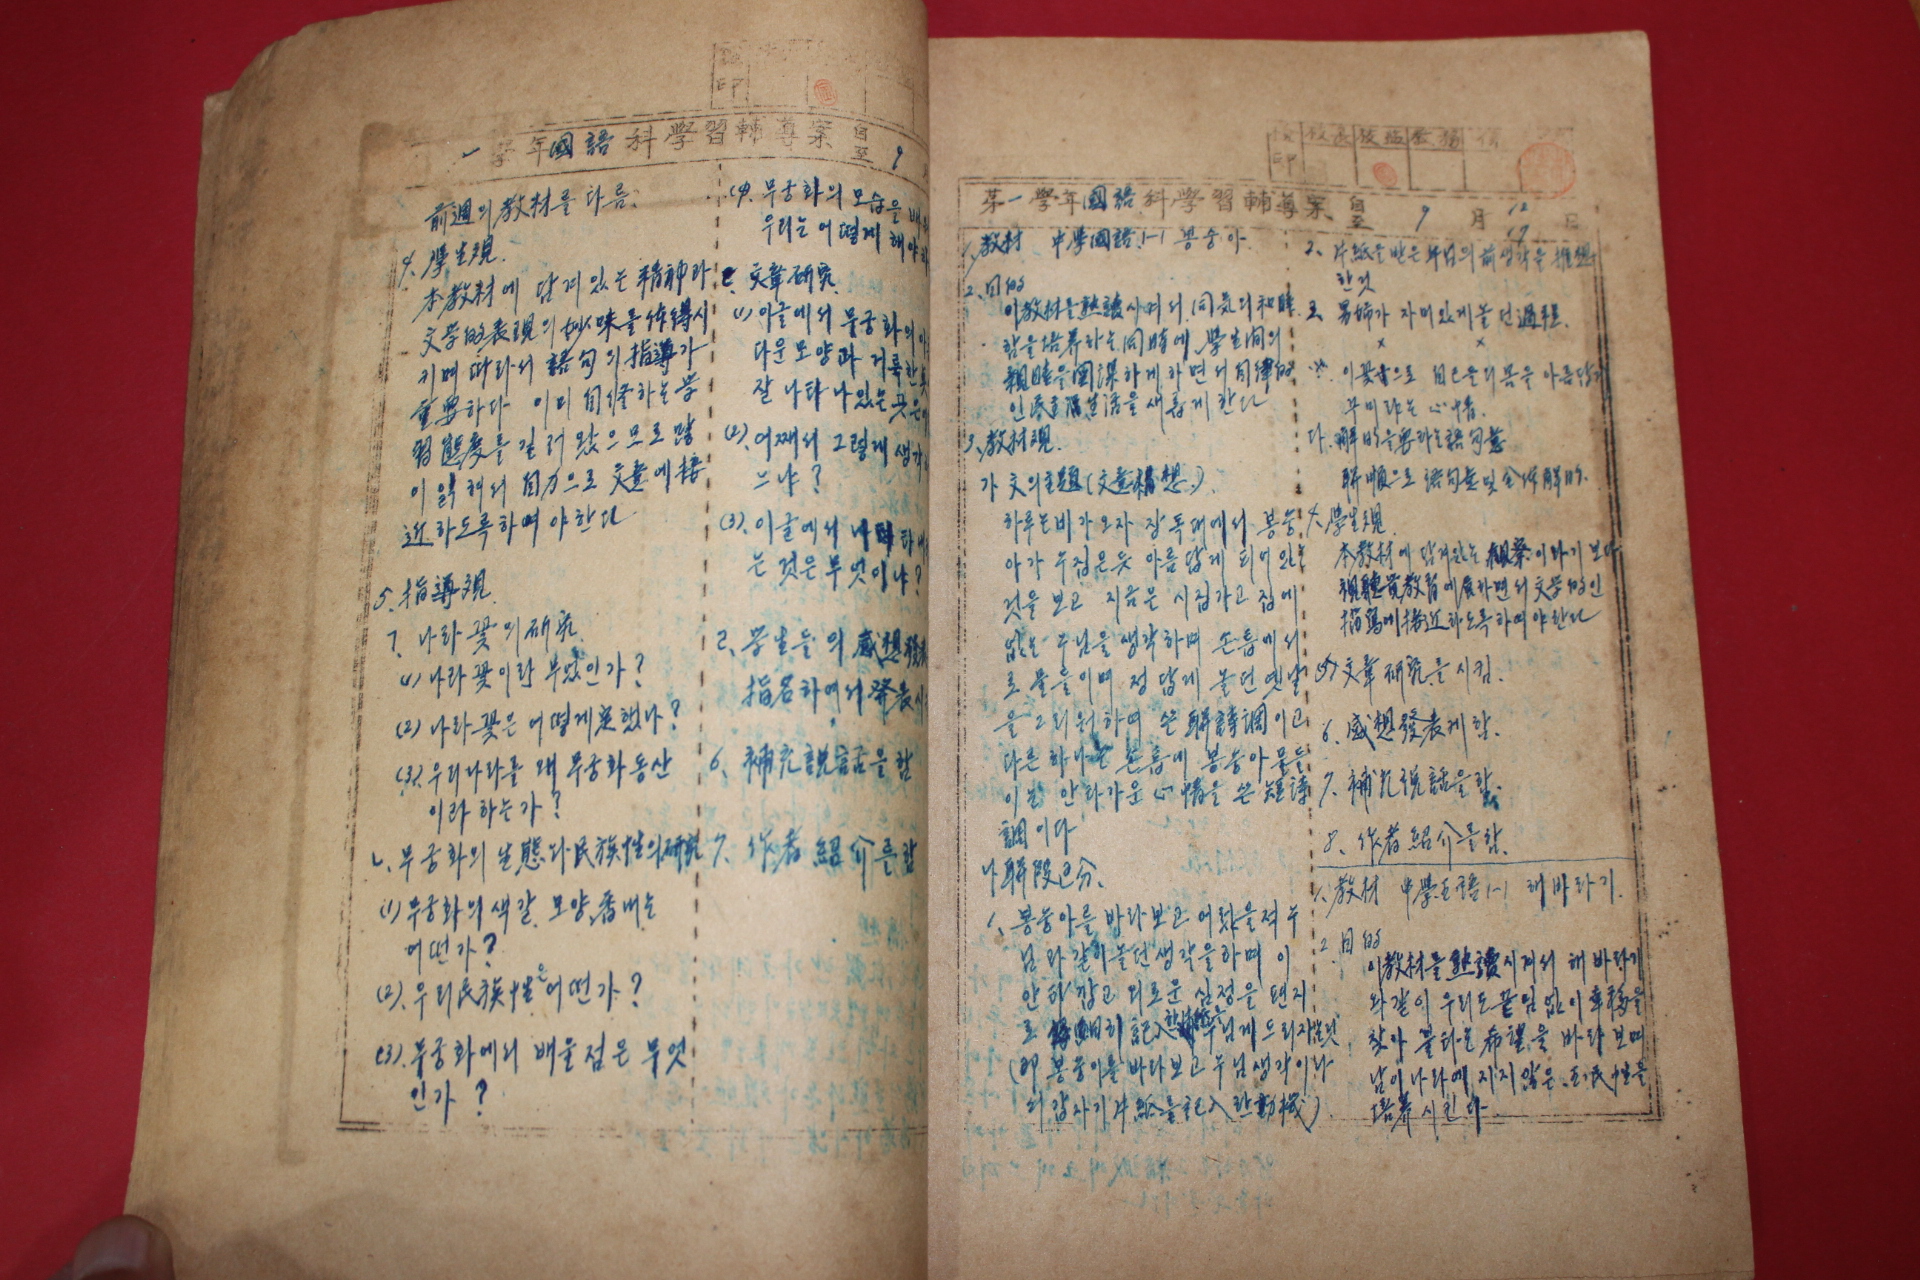 一 學年 國語 科學習輔導案 自 至 9
前週의 敎材를 다룸.
4. 學生觀
本敎材에 담겨있는 精神과
文学的表現의 妙味를 体得시
키며 따라서 語句의 指導가
重要하다 이미 하는 学
習態度를 길러 왔으므로 많
이 읽혀서 自力으로 文章에 接
近하도록하여야한다
5. 指導觀
ㄱ. 나라꽃의 研究
(1) 나라꽃이란 무엇인가?
(2) 나라꽃은 어떻게 定했나?
(3) 우리나라를 왜 무궁화동산
이라 하는가?
ㄴ. 무궁화의 生態와 民族性의 研究
(1) 무궁화의 색갈. 모양. 香내는
어떤가?
(2). 우리民族性은 어떤가?
(3). 무궁화에서 배울점은 무엇
인가?
(4). 무궁화의 모습을
우리는 어떻게 해야
ㄷ. 文章研究.
(1) 이글에서 무궁화의 아
다운 모양과 거룩한
잘 나타나있는 곳은
(2). 어째서 그렇게 생각
느냐?
(3). 이글에서 나타내
는 것은 무엇이냐?
ㄹ. 学生들의 感想發表
指名하여서 發表시
6. 補充說話을 함
7. 作者紹介를 함
印
第一學年 國語 科學習輔導案 自 至 9 月 12 17 日
1. 敎材 中學國語 1-1 봉숭아.
2. 目的
이敎材를 熟讀시켜서 同氣의 和睦
함을 培養하는同時에 學生間의
親睦을 圖謀하게하면서 自律的
인 生活을 새롭게 한다
3. 敎材觀
가 文의主題(文章構想).
하루는비가오자 장독대에서 봉숭
아가 아름답게 피어있는
것을 보고 지금은 시집가고 집에
없는 누님을 생각하며 손톱에서
로 물을 이며 정답게 놀던 옛날
을 그리워하며 쓴 聯詩調이고
다른 하나는 손톱에 봉숭아 물들
이는 안타가운 心情을 쓴 短詩
調이다
나 聯段區分.
1. 봉숭아를 바라보고 어렸을적 누
님과 같이놀던생각을하며 이
안타깝고 외로운 심정을 편지
로 細히 記入 누님께 드리자는것
봉숭아를 바라보고 누님생각이나
紙를 記入한 動機)
2. 片紙을 받은 누님의 前생각을 推想
한것
3. 男妹가 자미있게 놀던 過程.
× ×
※. 이꽃잎으로 自己들의 몸을 아름답게
꾸미려는 心情.
다. 을 要하는語句는
聯順으로 語句 및 全体
4. 學生觀.
本敎材에 담겨있는 이라기 보다
視聽覺敎育에 하면서 文学的인
에 接近하도록하여야한다
(5) 文章研究를 시킴.
6. 感想發表케함.
7. 補充說話을함.
8. 作者紹介를함.
1. 敎材 中學国語1-1 해바라기.
2. 目的
이敎材를 熟讀시켜서 해바라기
와같이 우리도 끝임없이 幸福을
찾아 불타는 希望을 바라보며
남이나라에 지지않은 国民性을
培養시킨다